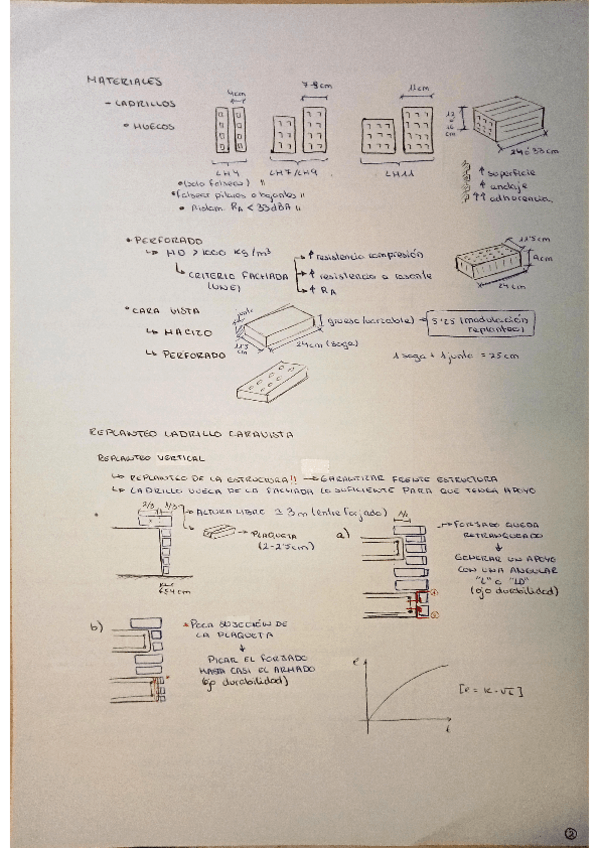 MATERIALES
- LADRILLOS
• HUECOS
4cm
7-9cm
11cm
12 ó 16 cm
24 ó 33cm
LH4
LH7/LH9
LH11
• (solo falseos) !!
• falsear pilares o bajantes !!
• Aislam. RA < 35dBA !!
↑ superficie
↑ anclaje
↑↑ adherencia
• PERFORADO
↳ MD > 1000 KG/m³
↳ CRITERIO FACHADA
(UNE)
→ ↑ resistencia compresión
→ ↑ resistencia a rasante
→ ↑ RA
11'5cm
9cm
24cm
• CARA VISTA
↳ MACIZO
↳ PERFORADO
11'5 cm
24cm (soga)
grueso (variable) → 5'25 (modulación
replanteo)
1 soga + 1 junta = 25cm
REPLANTEO LADRILLO CARAVISTA
REPLANTEO VERTICAL
↳ REPLANTEO DE LA ESTRUCTURA!! → GARANTIZAR FRENTE ESTRUCTURA
↳ LADRILLO VUELA DE LA FACHADA LO SUFICIENTE PARA QUE TENGA APOYO
2/3
1/3
ALTURA LIBRE ≤ 3m (entre forjado)
→ PLAQUETA
(2-2'5cm)
a)
→ FORJADO QUEDA
RETRANQUEADO
↓
GENERAR UN APOYO
CON UNA ANGULAR
"L" o "LD"
(ojo durabilidad)
b)
• POCA SUJECCIÓN DE
LA PLAQUETA
↓
PICAR EL FORJADO
HASTA CASI EL ARMADO
(ojo durabilidad)
e
t
[e = K·√t]
2